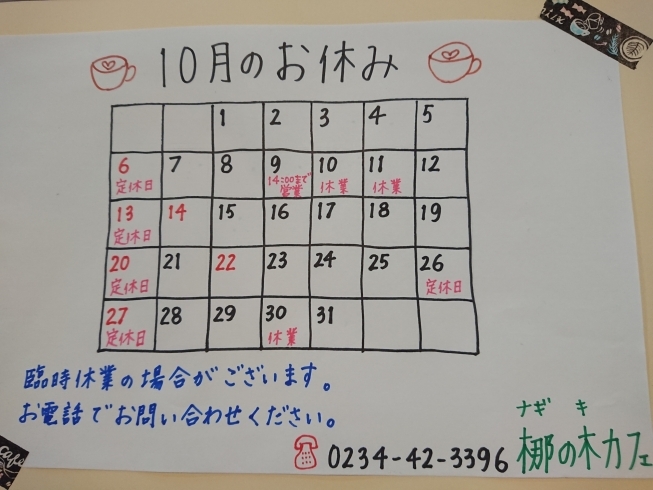 10月のお休み
1 2 3 4 5
6 7 8 9 10 11 12
定休日 14:00まで 休業 休業
営業
13 14 15 16 17 18 19
定休日
20 21 22 23 24 25 26
定休日 定休日
27 28 29 30 31
定休日 休業
臨時休業の場合がございます。
お電話でお問い合わせください。
ナギ キ
0234-42-3396 梛の木カフェ